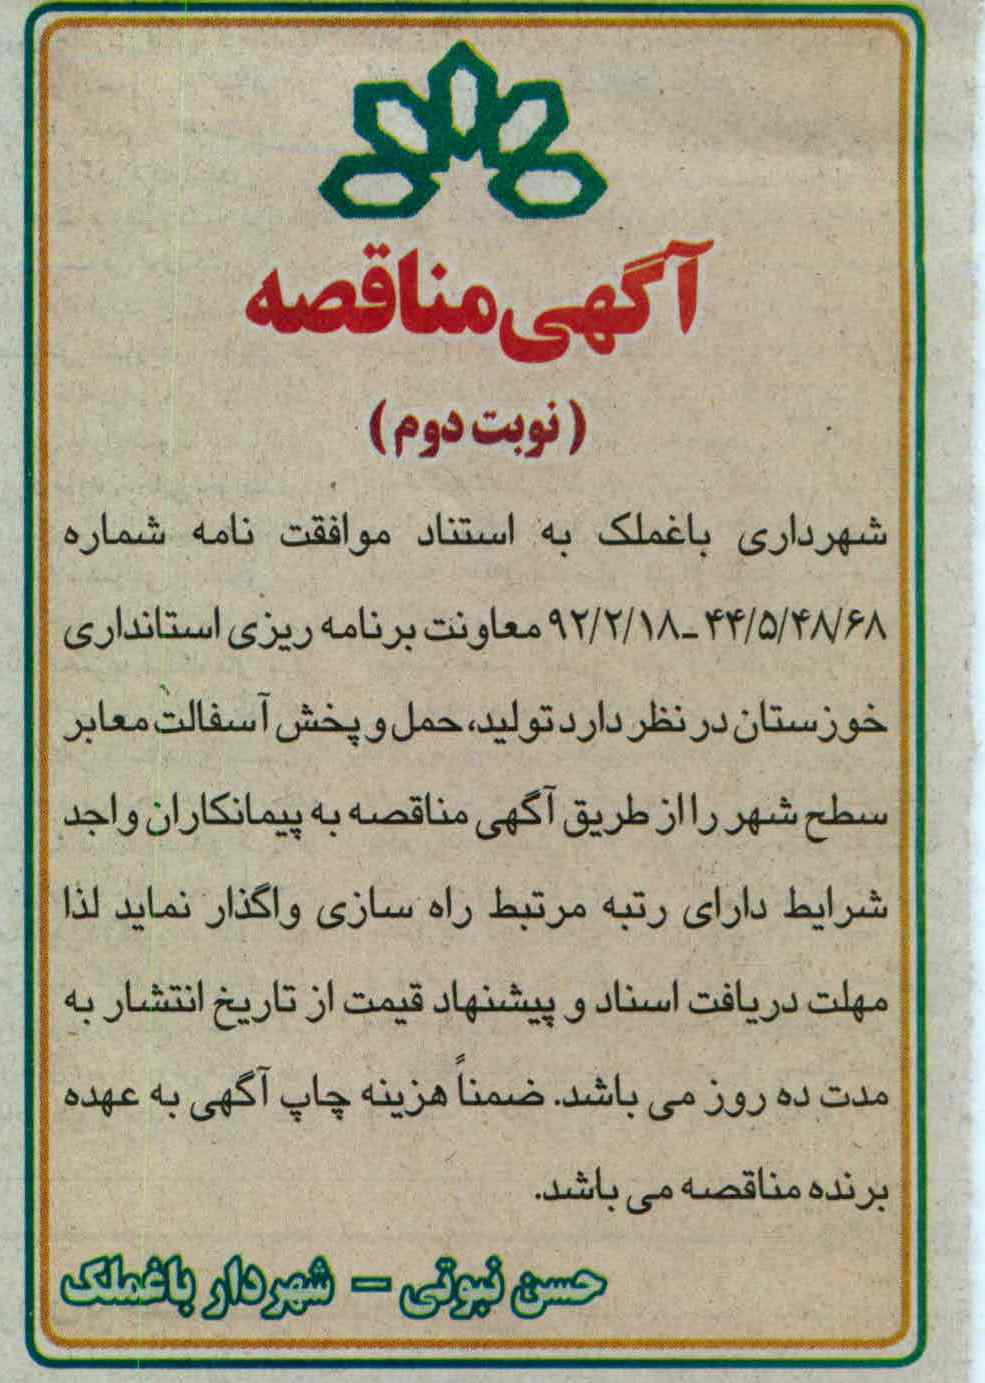 آگهی مناقصه
(نوبت دوم)
شهرداری باغملک به استناد موافقت نامه شماره
۴۴/۵/۴۸/۶۸ ــ ۹۲/۲/۱۸ معاونت برنامه ریزی استانداری
خوزستان در نظر دارد تولید، حمل و پخش آسفالت معابر
سطح شهر را از طریق آگهی مناقصه به پیمانکاران واجد
شرایط دارای رتبه مرتبط راه سازی واگذار نماید لذا
مهلت دریافت اسناد و پیشنهاد قیمت از تاریخ انتشار به
مدت ده روز می باشد. ضمناً هزینه چاپ آگهی به عهده
برنده مناقصه می باشد.
حسن نبوتی – شهردار باغملک